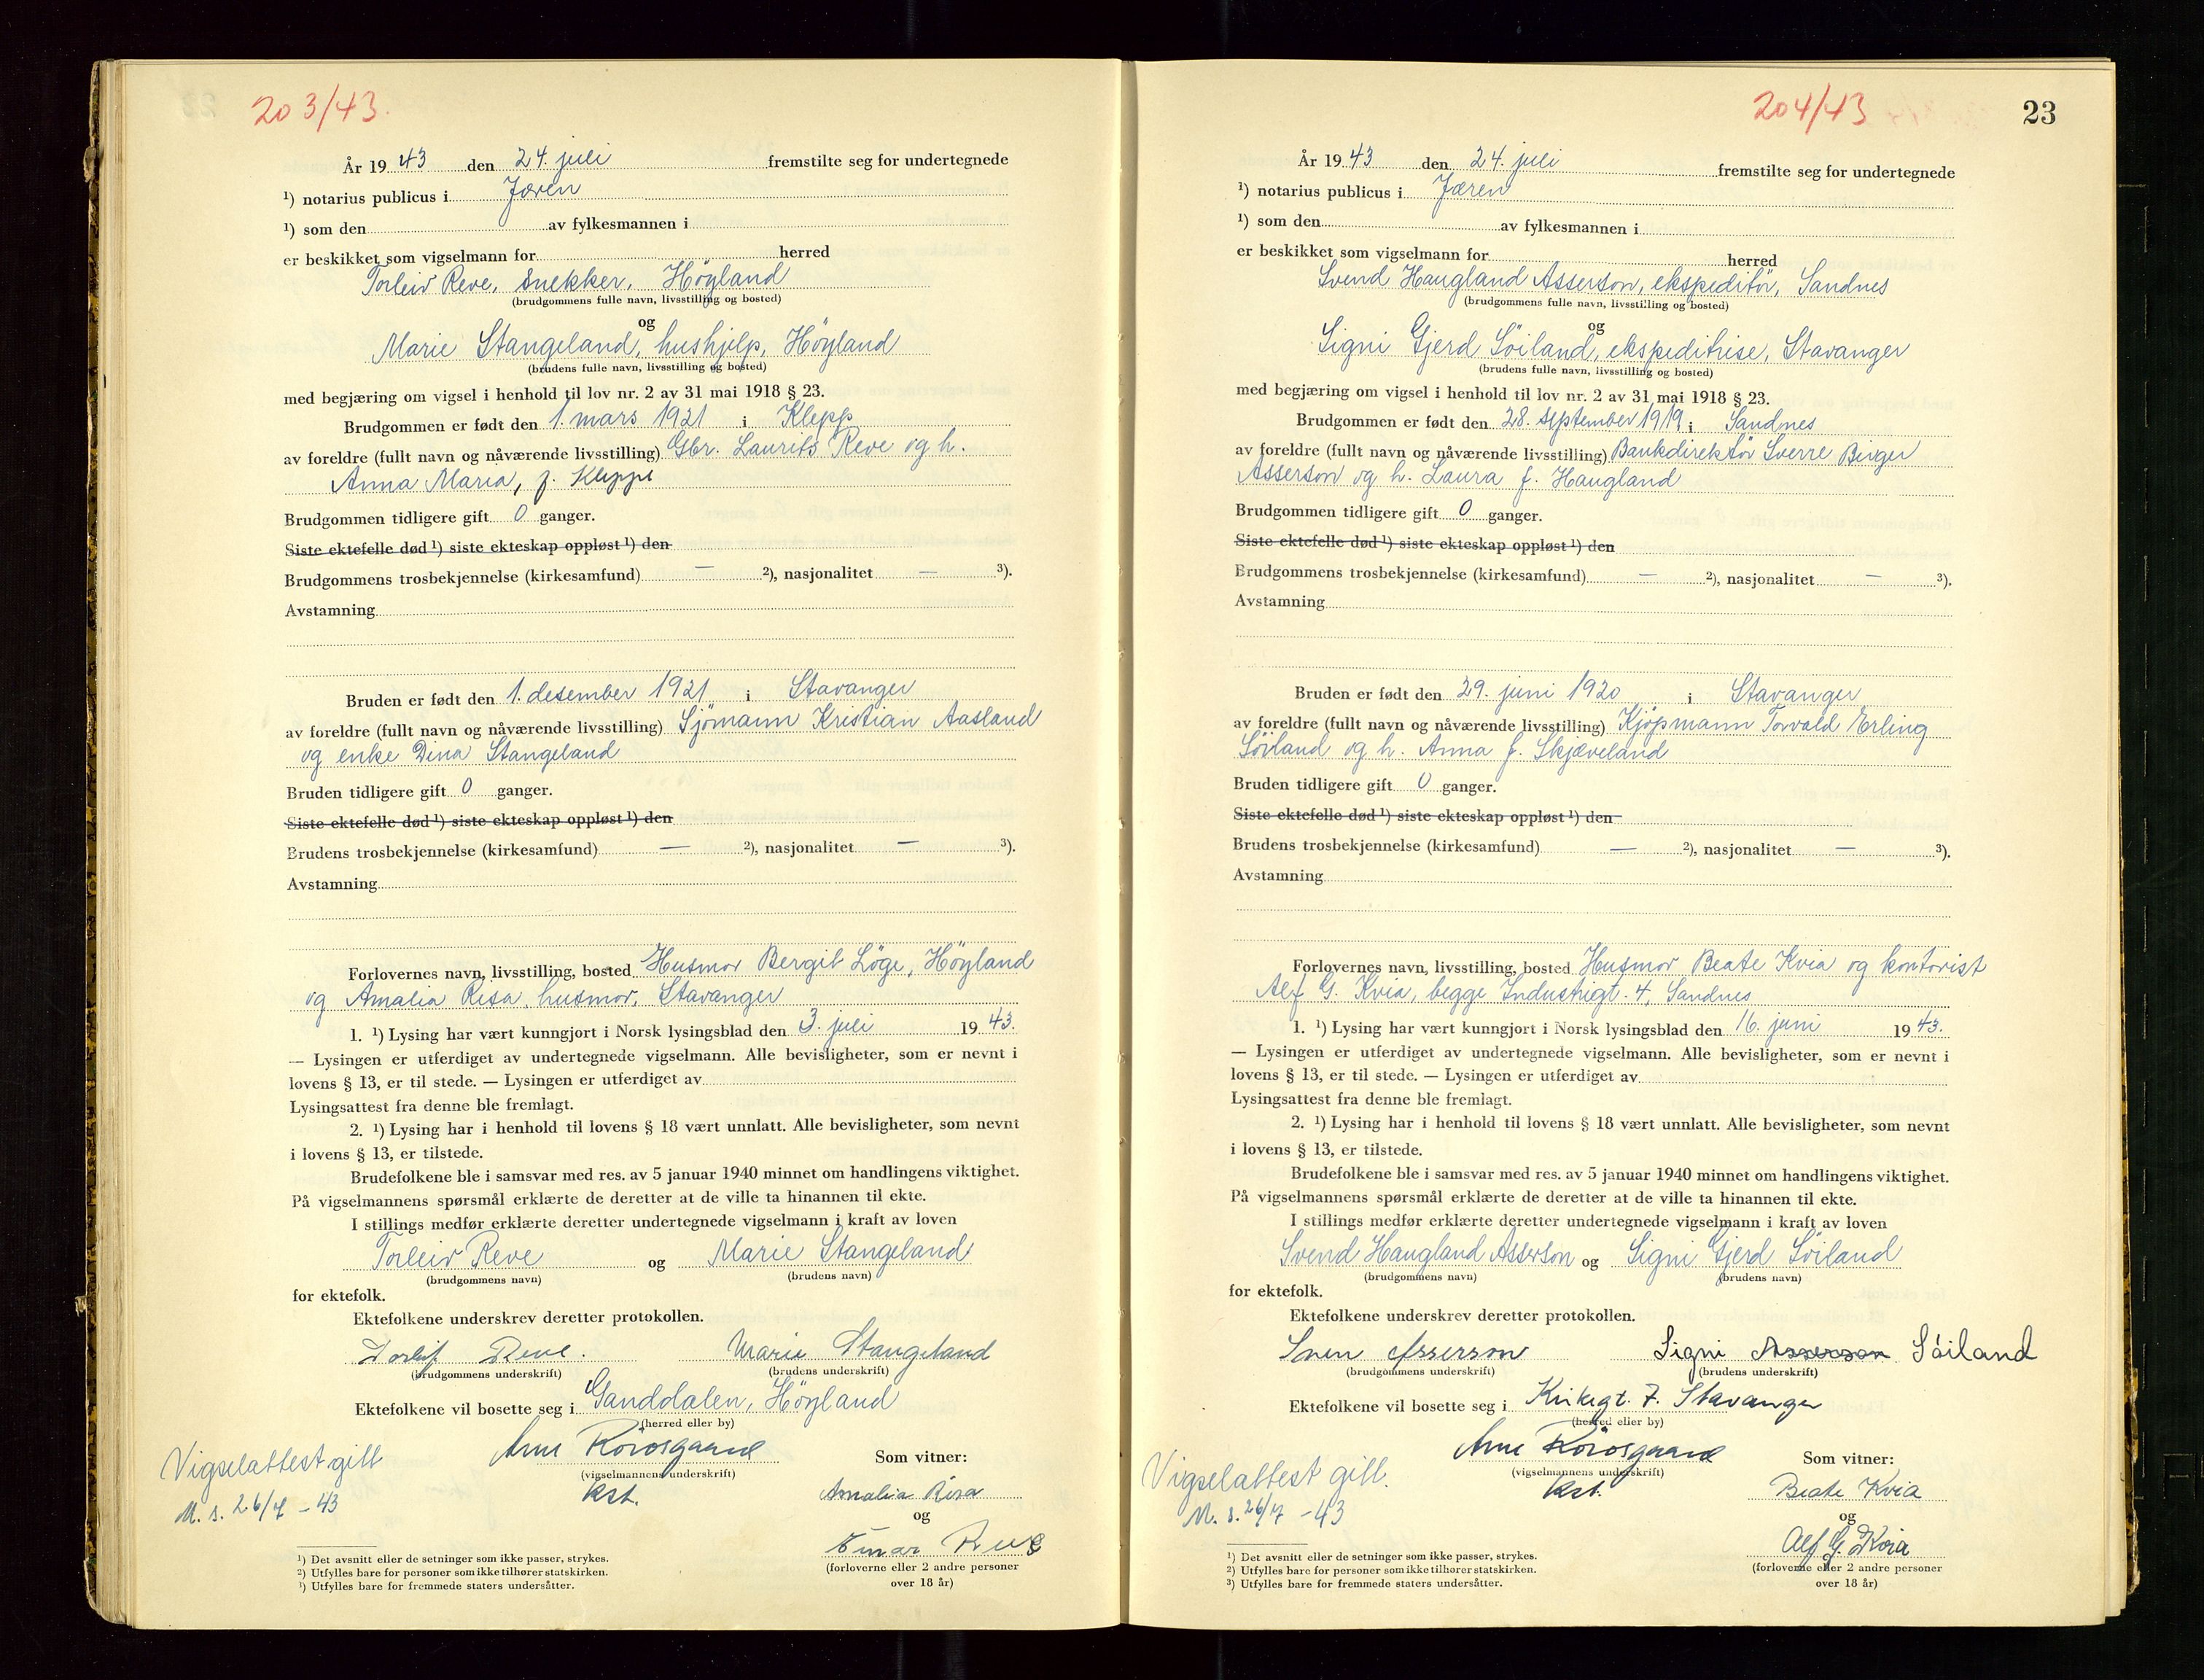 203/43.
År 1943 den 24. juli fremstilte seg for undertegnede
¹) notarius publicus i Jæren
¹) som den av fylkesmannen i
er beskikket som vigselmann for herred
Torleiv Reve, snekker, Höyland
(brudgommens fulle navn, livsstilling og bosted)
og
Marie Stangeland, hushjelp, Höyland
(brudens fulle navn, livsstilling og bosted)
med begjæring om vigsel i henhold til lov nr. 2 av 31 mai 1918 § 23.
Brudgommen er født den 1. mars 1921 i Klepp
av foreldre (fullt navn og nåværende livsstilling) Gbr. Laurits Reve og h.
Anna Maria, f. Kleppe
Brudgommen tidligere gift 0 ganger.
Siste ektefelle død ¹) siste ekteskap oppløst ¹) den
Brudgommens trosbekjennelse (kirkesamfund) — ²), nasjonalitet — ³).
Avstamning
Bruden er født den 1. desember 1921 i Stavanger
av foreldre (fullt navn og nåværende livsstilling) Sjömann Kristian Aasland
og enke Dina Stangeland
Bruden tidligere gift 0 ganger.
Siste ektefelle død ¹) siste ekteskap oppløst ¹) den
Brudens trosbekjennelse (kirkesamfund) — ²), nasjonalitet — ³).
Avstamning
Forlovernes navn, livsstilling, bosted Husmor Bergit Löge, Höyland
og Amalia Risa, husmor, Stavanger
1. ¹) Lysing har vært kunngjort i Norsk lysingsblad den 3. juli 1943.
— Lysingen er utferdiget av undertegnede vigselmann. Alle bevisligheter, som er nevnt i
lovens § 13, er til stede. — Lysingen er utferdiget av
Lysingsattest fra denne ble fremlagt.
2. ¹) Lysing har i henhold til lovens § 18 vært unnlatt. Alle bevisligheter, som nevnt
i lovens § 13, er tilstede.
Brudefolkene ble i samsvar med res. av 5 januar 1940 minnet om handlingens viktighet.
På vigselmannens spørsmål erklærte de deretter at de ville ta hinannen til ekte.
I stillings medfør erklærte deretter undertegnede vigselmann i kraft av loven
Torleiv Reve og Marie Stangeland
(brudgommens navn) (brudens navn)
for ektefolk.
Ektefolkene underskrev deretter protokollen.
Torleif Reve. Marie Stangeland
(brudgommens underskrift) (brudens underskrift)
Ektefolkene vil bosette seg i Ganddalen, Höyland
(herred eller by)
Arne Rörosgaard
(vigselmannens underskrift)
kst.
Vigselattest gitt
M. s. 26/7 - 43
Som vitner:
Amalia Risa
og
Einar Reve
(forloverne eller 2 andre personer
over 18 år)
¹) Det avsnitt eller de setninger som ikke passer, strykes.
²) Utfylles bare for personer som ikke tilhører statskirken.
³) Utfylles bare for fremmede staters undersåtter.
204/43
23
År 1943 den 24. juli fremstilte seg for undertegnede
¹) notarius publicus i Jæren
¹) som den av fylkesmannen i
er beskikket som vigselmann for herred
Svend Haugland Asserson, ekspeditör, Sandnes
(brudgommens fulle navn, livsstilling og bosted)
og
Signi Gjerd Söiland, ekspeditrise, Stavanger
(brudens fulle navn, livsstilling og bosted)
med begjæring om vigsel i henhold til lov nr. 2 av 31 mai 1918 § 23.
Brudgommen er født den 28. september 1919 i Sandnes
av foreldre (fullt navn og nåværende livsstilling) Bankdirektör Sverre Birger
Asserson og h. Laura f. Haugland
Brudgommen tidligere gift 0 ganger.
Siste ektefelle død ¹) siste ekteskap oppløst ¹) den
Brudgommens trosbekjennelse (kirkesamfund) — ²), nasjonalitet — ³).
Avstamning
Bruden er født den 29. juni 1920 i Stavanger
av foreldre (fullt navn og nåværende livsstilling) Kjöpmann Torvald Erling
Söiland og h. Anna f. Skjæveland
Bruden tidligere gift 0 ganger.
Siste ektefelle død ¹) siste ekteskap oppløst ¹) den
Brudens trosbekjennelse (kirkesamfund) — ²), nasjonalitet — ³).
Avstamning
Forlovernes navn, livsstilling, bosted Husmor Beate Kvia og kontorist
Alf G. Kvia, begge Industrigt. 4, Sandnes
1. ¹) Lysing har vært kunngjort i Norsk lysingsblad den 16. juni 1943.
— Lysingen er utferdiget av undertegnede vigselmann. Alle bevisligheter, som er nevnt i
lovens § 13, er til stede. — Lysingen er utferdiget av
Lysingsattest fra denne ble fremlagt.
2. ¹) Lysing har i henhold til lovens § 18 vært unnlatt. Alle bevisligheter, som nevnt
i lovens § 13, er tilstede.
Brudefolkene ble i samsvar med res. av 5 januar 1940 minnet om handlingens viktighet.
På vigselmannens spørsmål erklærte de deretter at de ville ta hinannen til ekte.
I stillings medfør erklærte deretter undertegnede vigselmann i kraft av loven
Svend Haugland Asserson og Signi Gjerd Söiland
(brudgommens navn) (brudens navn)
for ektefolk.
Ektefolkene underskrev deretter protokollen.
Sven Asserson Signi Asserson Söiland
(brudgommens underskrift) (brudens underskrift)
Ektefolkene vil bosette seg i Kirkegt. 7. Stavanger
(herred eller by)
Arne Rörosgaard
(vigselmannens underskrift)
kst.
Vigselattest gitt.
M. s. 26/7 - 43
Som vitner:
Beate Kvia
og
Alf G. Kvia
(forloverne eller 2 andre personer
over 18 år)
¹) Det avsnitt eller de setninger som ikke passer, strykes.
²) Utfylles bare for personer som ikke tilhører statskirken.
³) Utfylles bare for fremmede staters undersåtter.